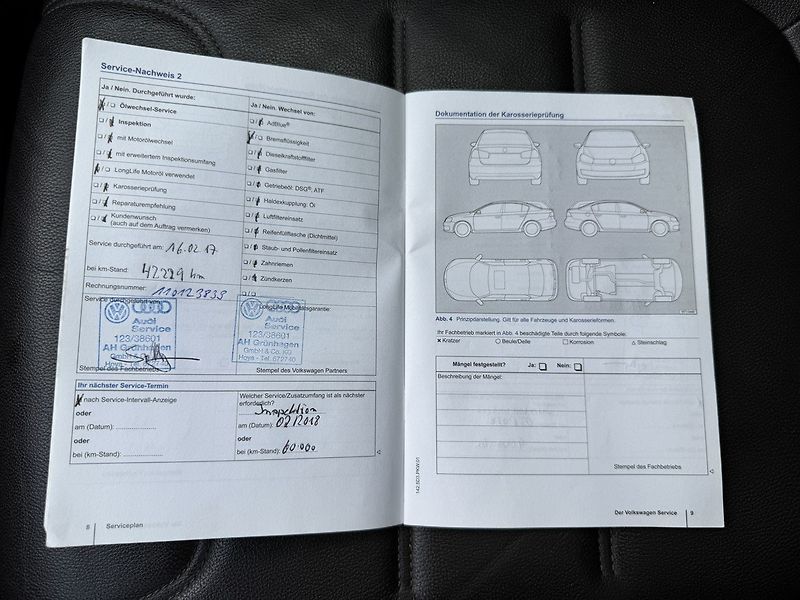 Service-Nachweis 2
Ja / Nein. Durchgeführt wurde:
Ölwechsel-Service
Inspektion
mit Motorölwechsel
mit erweitertem Inspektionsumfang
LongLife Motoröl verwendet
Karosserieprüfung
Reparaturempfehlung
Kundenwunsch
(auch auf dem Auftrag vermerken)
Service durchgeführt am: 16.02.17
bei km-Stand: 42229 km
Rechnungsnummer: 110123839
Service durchgeführt von:
Audi
Service
123/38601
AH Grünhagen
GmbH & Co. KG
Hoya - Tel. 672740
Stempel des Fachbetriebs
Ja / Nein. Wechsel von:
AdBlue®
Bremsflüssigkeit
Dieselkraftstofffilter
Gasfilter
Getriebeöl: DSG®, ATF
Haldexkupplung: Öl
Luftfiltereinsatz
Reifenfüllflasche (Dichtmittel)
Staub- und Pollenfiltereinsatz
Zahnriemen
Zündkerzen
LongLife Mobilitätsgarantie:
Audi
Service
123/38601
AH Grünhagen
GmbH & Co. KG
Hoya - Tel. 672740
Stempel des Volkswagen Partners
Ihr nächster Service-Termin
nach Service-Intervall-Anzeige
oder
am (Datum):
oder
bei (km-Stand):
Welcher Service/Zusatzumfang ist als nächster
erforderlich?
Inspektion
am (Datum): 02/2018
oder
bei (km-Stand): 60.000
8 Serviceplan
Dokumentation der Karosserieprüfung
Abb. 4 Prinzipdarstellung. Gilt für alle Fahrzeuge und Karosserieformen.
Ihr Fachbetrieb markiert in Abb. 4 beschädigte Teile durch folgende Symbole:
× Kratzer ○ Beule/Delle □ Korrosion △ Steinschlag
Mängel festgestellt? Ja: Nein:
Beschreibung der Mängel:
Stempel des Fachbetriebs
142.5D3.PKW.01
Der Volkswagen Service 9